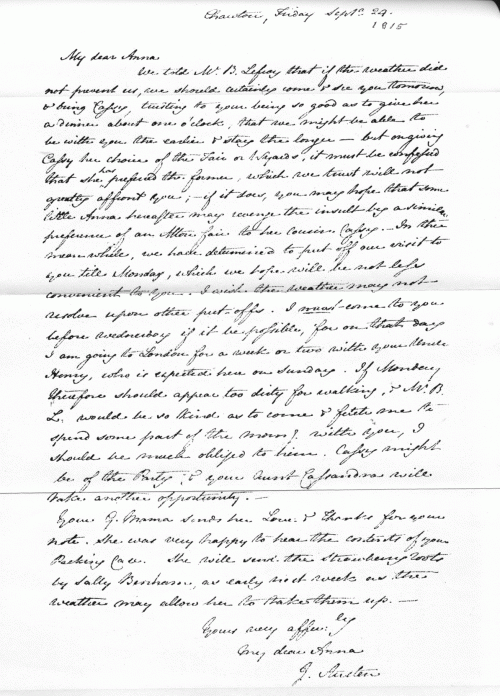 Chawton, Friday Septr. 29.
1815
My dear Anna
We told Mr. B. Lefroy that if the weather did
not prevent us, we should certainly come & see you tomorrow,
& bring Cassy, trusting to your being so good as to give her
a dinner about one o'clock, that we might be able to
be with you the earlier & stay the longer — but on giving
Cassy her choice of the Fair or Wyards, it must be confessed
that she has preferred the former, which we trust will not
greatly affront you; — if it does, you may hope that some
little Anna hereafter may revenge the insult by a similar
preference of an Alton fair to her cousin Cassy. — In the
mean while, we have determined to put off our visit to
you till Monday, which we hope will be not less
convenient to You. — I wish the weather may not
resolve upon other put offs. I must come to you
before wednesday if it be possible, for on that day
I am going to London for a week or two with your Uncle
Henry, who is expected here on Sunday. If Monday
therefore should appear too dirty for walking, & Mr. B.
L. would be so kind as to come & fetch me to
spend some part of the morng. with you, I
should be much obliged to him. Cassy might
be of the Party, & your Aunt Cassandra will
take another opportunity. —
Your G. Mama sends her Love & Thanks for your
note. She was very happy to hear the contents of your
Packing Case. She will send the Strawberry roots
by Sally Benham, as early next week as the
weather may allow her to take them up. —
Yours very affec:ly
My dear Anna
J. Austen